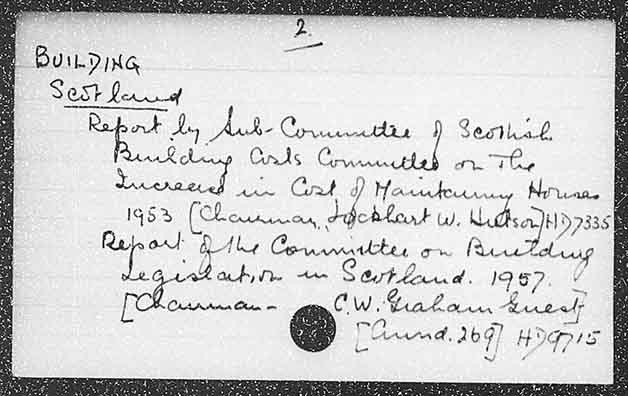 2.
BUILDING
Scotland
Report by Sub-Committee of Scottish
Building Costs Committee on The
Increase in Cost of Maintaining Houses
1953 [Chairman, Lockhart W. Hutson] HD7335
Report of the Committee on Building
Legislation in Scotland. 1957.
[Chairman - C.W. Graham Guest]
[Cmnd. 269] HD9715